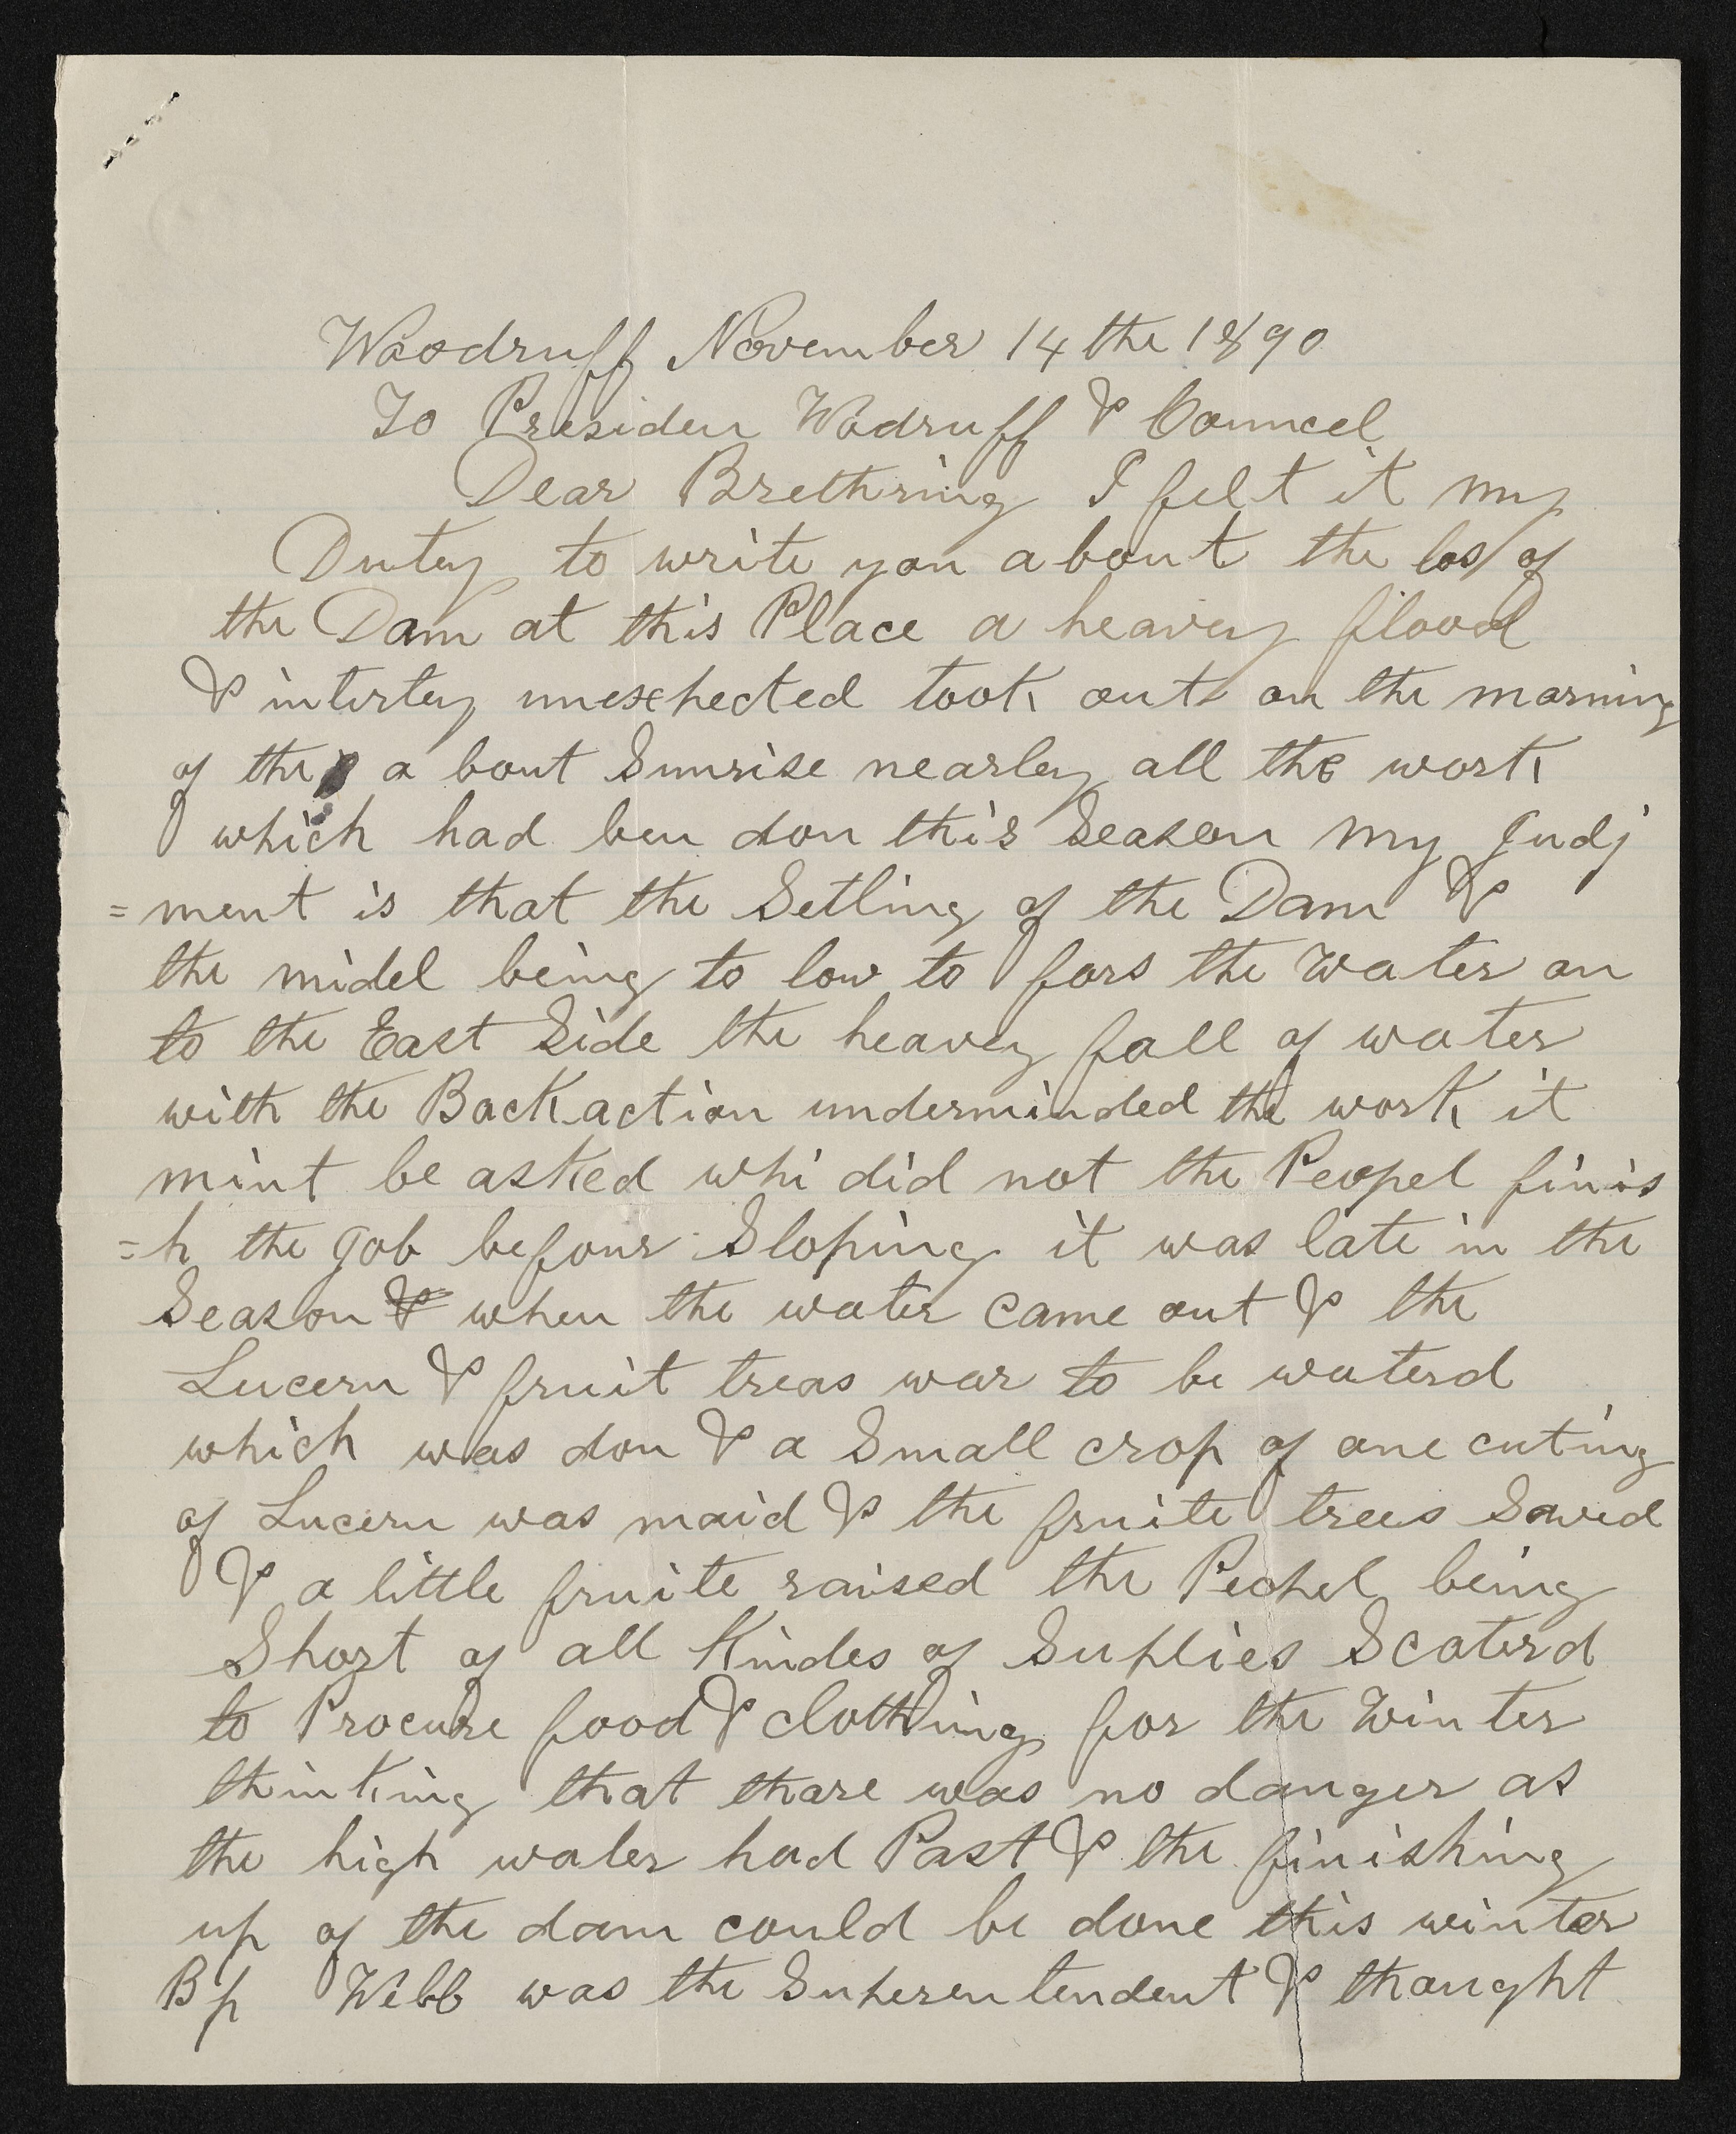 Woodruff November 14 the 1890
To Presiden Wodruff & Councel
Dear Brethring I felt it my
Dutey to write you a bout the los of
the Dam at this Place a heavey flood
& intirtey unexpected took out on the morning
of the a bout Sunrise nearley all the work
which had ben don this Season my Judj
=ment is that the Setling of the Dam &
the midel being to low to fors the Water on
to the East Side the heavey fall of water
with the Back action underminded the work it
mint be asked whi did not the Peopel finis
=h the gob befour Stoping it was late in the
Season & when the water came out & the
Lucern & fruit treas war to be waterd
which was don & a Small crop of one cuting
of Lucern was maid & the fruite trees Saved
& a little fruite raised the Pepel being
Short of all Kindes of Suplies Scaterd
to Procure food & clothing for the Winter
thinking that thare was no danger as
the high water had Past & the finishing
up of the dam could be done this winter
Bp Webb was the Superentendent & thought